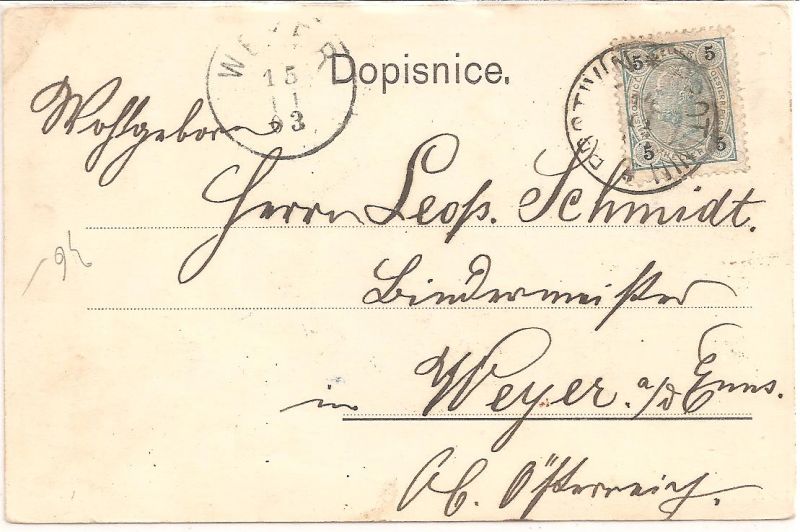 WEYER
15
11
93
Dopisnice.
5 5
5 5
Wohlgeboren
Herrn Leop. Schmidt.
Bindermeister
in Weyer. a/d Enns.
Ob. Österreich.